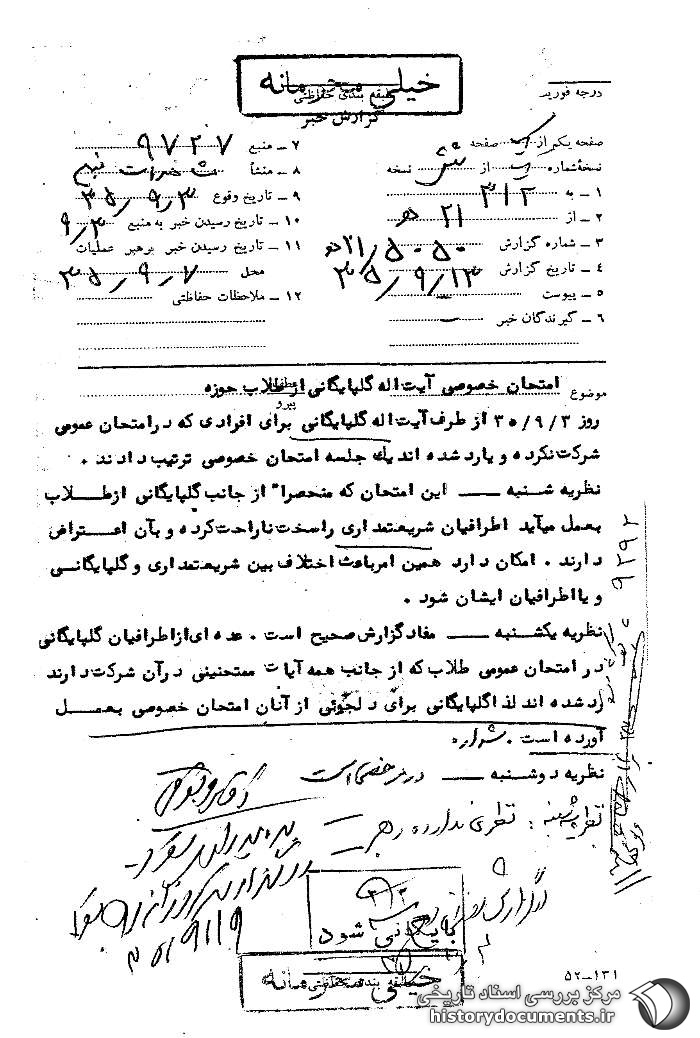 خیلی محرمانه
طبقه بندی حفاظتی
گزارش خبر
درجه فوریت
صفحه یکم از یک صفحه
نسخه شماره از نسخه
۱ - به ۳۱۲
۲ - از ۲۱ ه
۳ - شماره گزارش ۲۱/۵۰۵۰ ه
۴ - تاریخ گزارش ۳۵/۹/۱۳
۵ - پیوست
۶ - گیرندگان خبر
۷ - منبع ۹۷۲۷
۸ - منشأ
۹ - تاریخ وقوع ۳۵/۹/۳
۱۰ - تاریخ رسیدن خبر به منبع ۹/۳
۱۱ - تاریخ رسیدن خبر برهبر عملیات
محل ۳۵/۹/۷
۱۲ - ملاحظات حفاظتی
موضوع امتحان خصوصی آیت اله گلپایگانی از طلاب حوزه
روز ۳۰/۹/۳ از طرف آیت اله گلپایگانی برای افرادی که در امتحان عمومی
شرکت نکرده و یا رد شده اند یك جلسه امتحان خصوصی ترتیب دادند .
نظریه شنبه ــــ این امتحان که منحصرا" از جانب گلپایگانی از طلاب
بعمل میآید اطرافیان شریعتمداری را سخت ناراحت کرده و بآن اعتراض
دارند . امکان دارد همین امر باعث اختلاف بین شریعتمداری و گلپایگانی
و یا اطرافیان ایشان شود .
نظریه یکشنبه ــــ مفاد گزارش صحیح است . عده ای از اطرافیان گلپایگانی
در امتحان عمومی طلاب که از جانب همه آیات ممتحنینی در آن شرکت دارند
رد شده اند لذا گلپایگانی برای دلجوئی از آنان امتحان خصوصی بعمل
آورده است .
نظریه دوشنبه ــــ در مرخصی است
نظریه سه شنبه : نظری ندارد . رهبر
۳۱۲
بایگانی شود
۳۵/۹/۱۹
خیلی محرمانه
طبقه بندی حفاظتی
۵۲-۱۳۱
مرکز بررسی اسناد تاریخی
historydocuments.ir